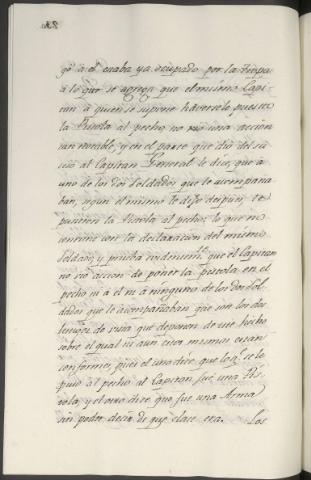 gó á él estaba ya ocupado por la tropa
á lo que se agrega que el mismo Capi-
tan á quien se supone haversele puesto
la Pistola al pecho, no vió una accion
tan notable, y en el parte que dió del su-
ceso al Capitan General le dice, que á
uno de los dos Soldados que le acompaña-
ban, segun el mismo le dijo despues, le
pusieron la Pistola al pecho: lo que no
con la declaracion del mismo
Soldado, y prueba que el Capitan
no vió accion de poner la pistola en el
pecho ni á él ni á ninguno de los dos Sol-
dados que le acompañaban que son los dos
testigos de vista que deponen de este hecho
sobre el qual ni aun ellos mismos estan
conformes, pues el uno dice que lo q.e se le
puso al pecho al Capitan fué una Pis-
tola, y el otro dice que fue una Arma
sin poder decir de que clase era. Los